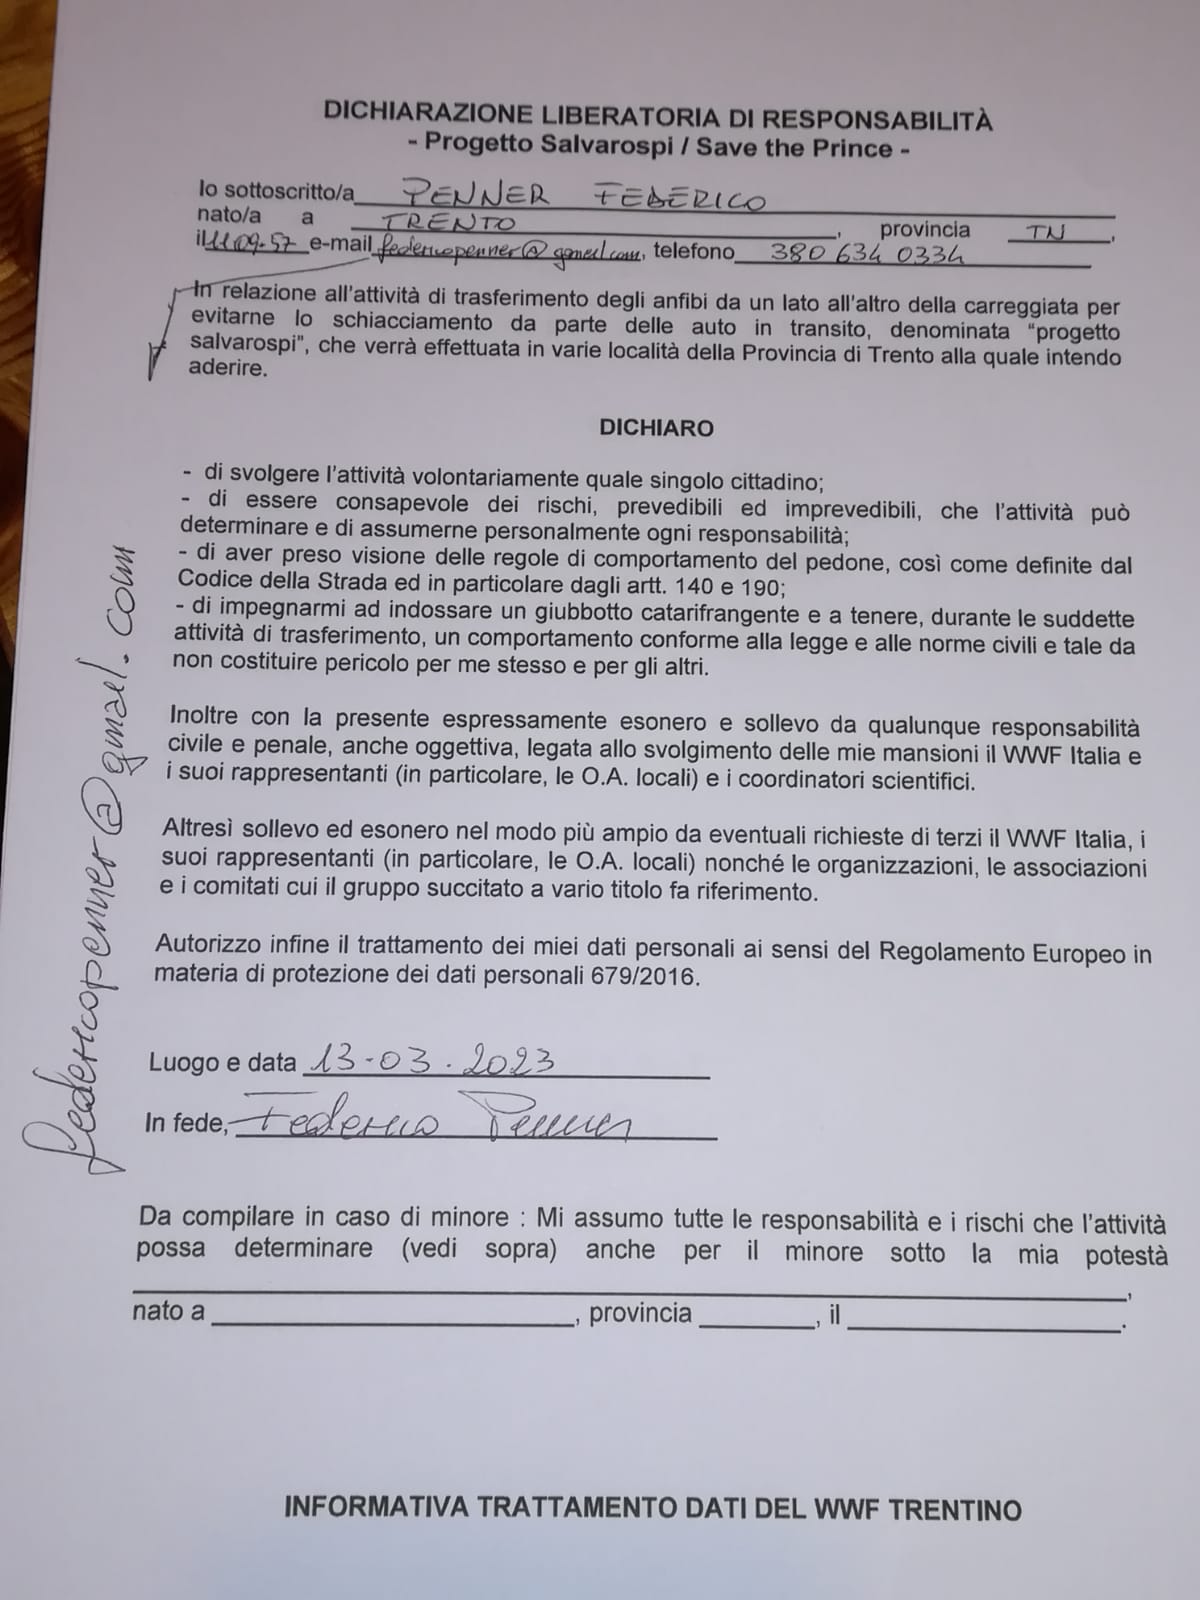 DICHIARAZIONE LIBERATORIA DI RESPONSABILITÀ
- Progetto Salvarospi / Save the Prince -
Io sottoscritto/a PENNER FEDERICO
nato/a a TRENTO, provincia TN,
il 11.09.57 e-mail federicopenner@gmail.com, telefono 380 634 0334
In relazione all'attività di trasferimento degli anfibi da un lato all'altro della carreggiata per
evitarne lo schiacciamento da parte delle auto in transito, denominata "progetto
salvarospi", che verrà effettuata in varie località della Provincia di Trento alla quale intendo
aderire.
DICHIARO
- di svolgere l'attività volontariamente quale singolo cittadino;
- di essere consapevole dei rischi, prevedibili ed imprevedibili, che l'attività può
determinare e di assumerne personalmente ogni responsabilità;
- di aver preso visione delle regole di comportamento del pedone, così come definite dal
Codice della Strada ed in particolare dagli artt. 140 e 190;
- di impegnarmi ad indossare un giubbotto catarifrangente e a tenere, durante le suddette
attività di trasferimento, un comportamento conforme alla legge e alle norme civili e tale da
non costituire pericolo per me stesso e per gli altri.
Inoltre con la presente espressamente esonero e sollevo da qualunque responsabilità
civile e penale, anche oggettiva, legata allo svolgimento delle mie mansioni il WWF Italia e
i suoi rappresentanti (in particolare, le O.A. locali) e i coordinatori scientifici.
Altresì sollevo ed esonero nel modo più ampio da eventuali richieste di terzi il WWF Italia, i
suoi rappresentanti (in particolare, le O.A. locali) nonché le organizzazioni, le associazioni
e i comitati cui il gruppo succitato a vario titolo fa riferimento.
Autorizzo infine il trattamento dei miei dati personali ai sensi del Regolamento Europeo in
materia di protezione dei dati personali 679/2016.
Luogo e data 13-03.2023
In fede, Federico Penner
federicopenner@gmail.com
Da compilare in caso di minore : Mi assumo tutte le responsabilità e i rischi che l'attività
possa determinare (vedi sopra) anche per il minore sotto la mia potestà
,
nato a , provincia , il .
INFORMATIVA TRATTAMENTO DATI DEL WWF TRENTINO